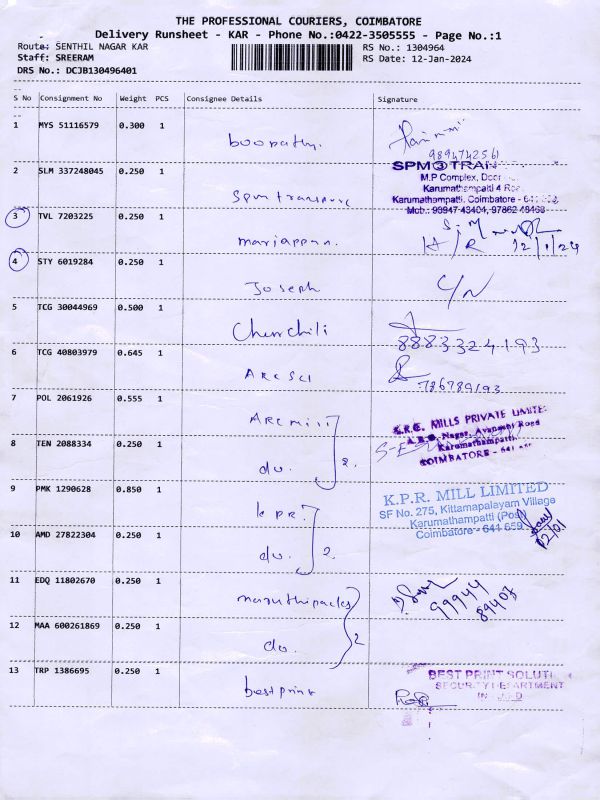 THE PROFESSIONAL COURIERS, COIMBATORE
Delivery Runsheet - KAR - Phone No.:0422-3505555 - Page No.:1
Route: SENTHIL NAGAR KAR
RS No.: 1304964
Staff: SREERAM
RS Date: 12-Jan-2024
DRS No.: DCJB130496401
S No Consignment No Weight PCS Consignee Details Signature
1 MYS 51116579 0.300 1 boopathy.
9894742561
2 SLM 337248045 0.250 1 spm transport
SPM TRAN
M.P Complex, Door
Karumathampatti 4 Ro
Karumathampatti, Coimbatore - 641
Mob.: 98947 43404, 97862 48468
3 TVL 7203225 0.250 1 mariappan.
12/1/24
4 STY 6019284 0.250 1 Joseph C/N
5 TCG 30044969 0.500 1 Chenchili
8883324193
6 TCG 40803979 0.645 1 ARC SCI
786789193
7 POL 2061926 0.555 1 ARC mill
MILLS PRIVATE LIMITE
Nagar, Avanashi Road
Karumathampatti
COIMBATORE - 641
8 TEN 2088334 0.250 1 do. 2.
9 PMK 1290628 0.850 1 k pr.
K.P.R. MILL LIMITED
SF No. 275, Kittampalayam Village
Karumathampatti (Pos
Coimbatore - 641 659
12/01
10 AMD 27822304 0.250 1 do. 2
11 EDQ 11802670 0.250 1 maruthipacks
99944
89407
12 MAA 600261869 0.250 1 do. 2
13 TRP 1386695 0.250 1 bestprint
BEST PRINT SOLUTI
SECURITY DEPARTMENT